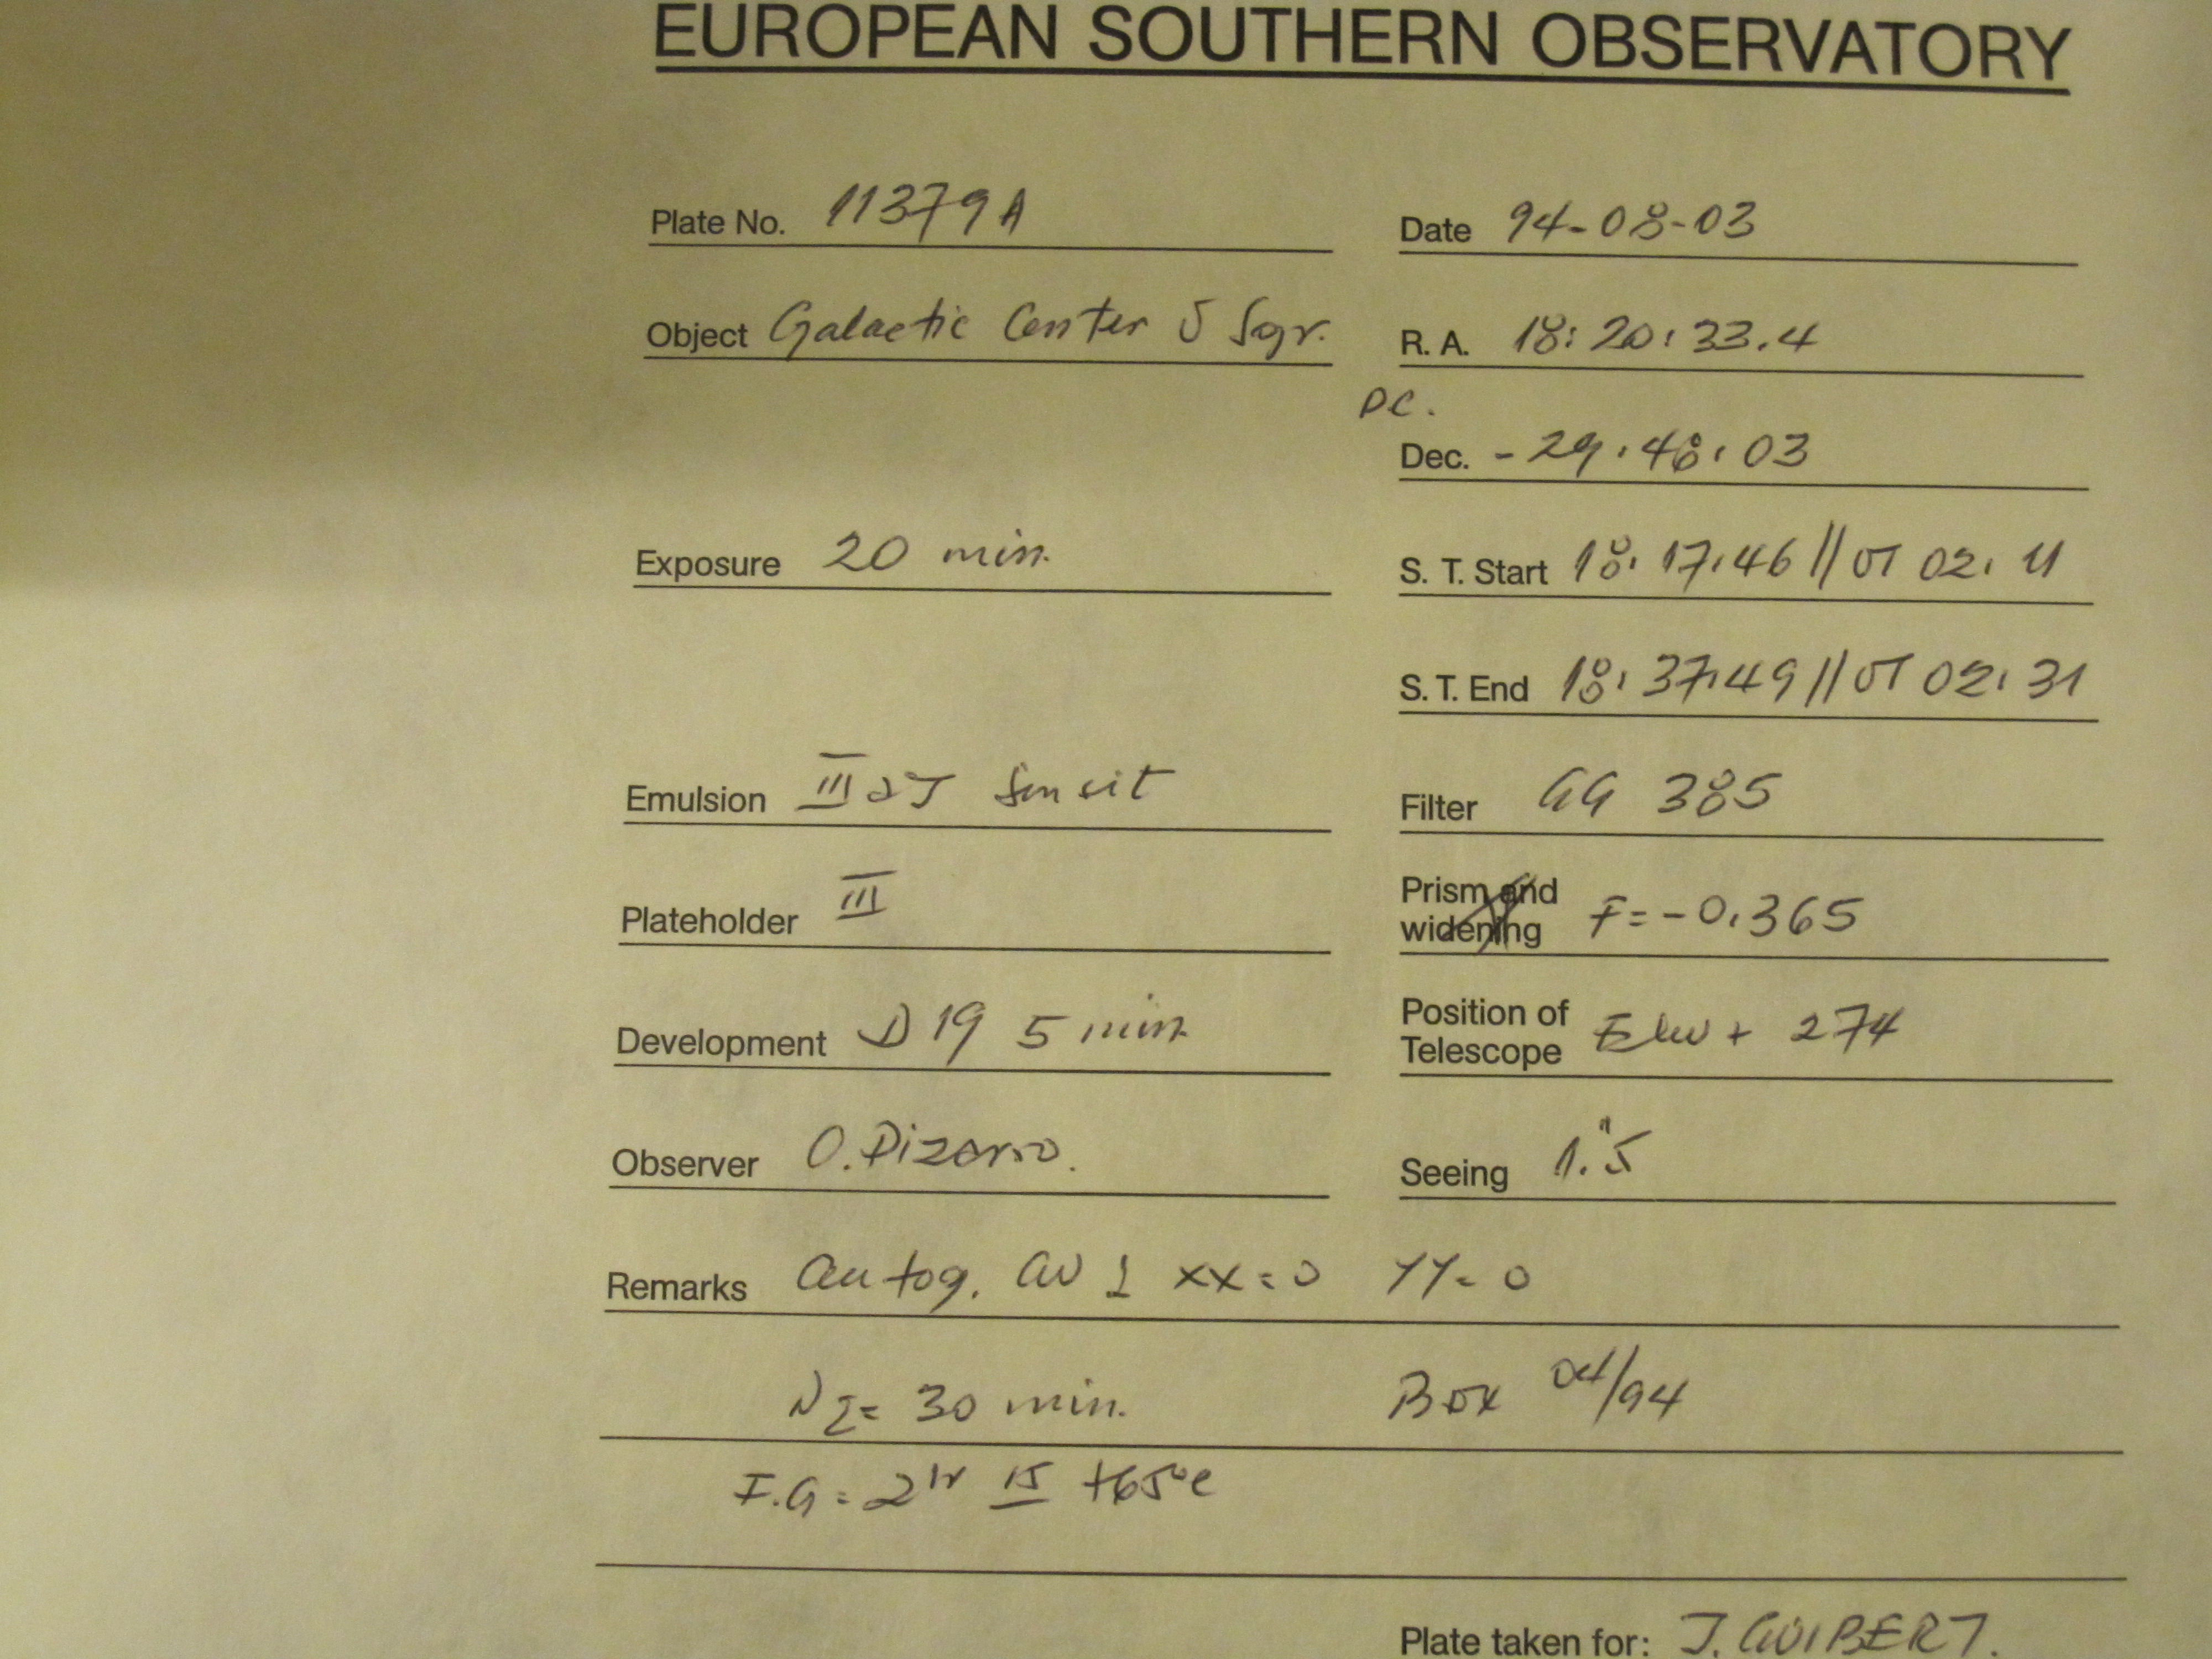 EUROPEAN SOUTHERN OBSERVATORY
Plate No. 11379A Date 94-08-03
Object Galactic Center δ Sgr. R. A. 18:20:33.4
DC.
Dec. -29:48:03
Exposure 20 min. S. T. Start 18:17:46 // UT 02:11
S. T. End 18:37:49 // UT 02:31
Emulsion III aJ Sensit Filter GG 385
Plateholder III Prism and widening F=-0.365
Development D 19 5 min Position of Telescope E/W + 274
Observer O. Pizarro. Seeing 1."5
Remarks Autog. XX=0 YY=0
N2= 30 min. Box 04/94
F.G= 2hr 15 +65°C
Plate taken for: J. GUIBERT.